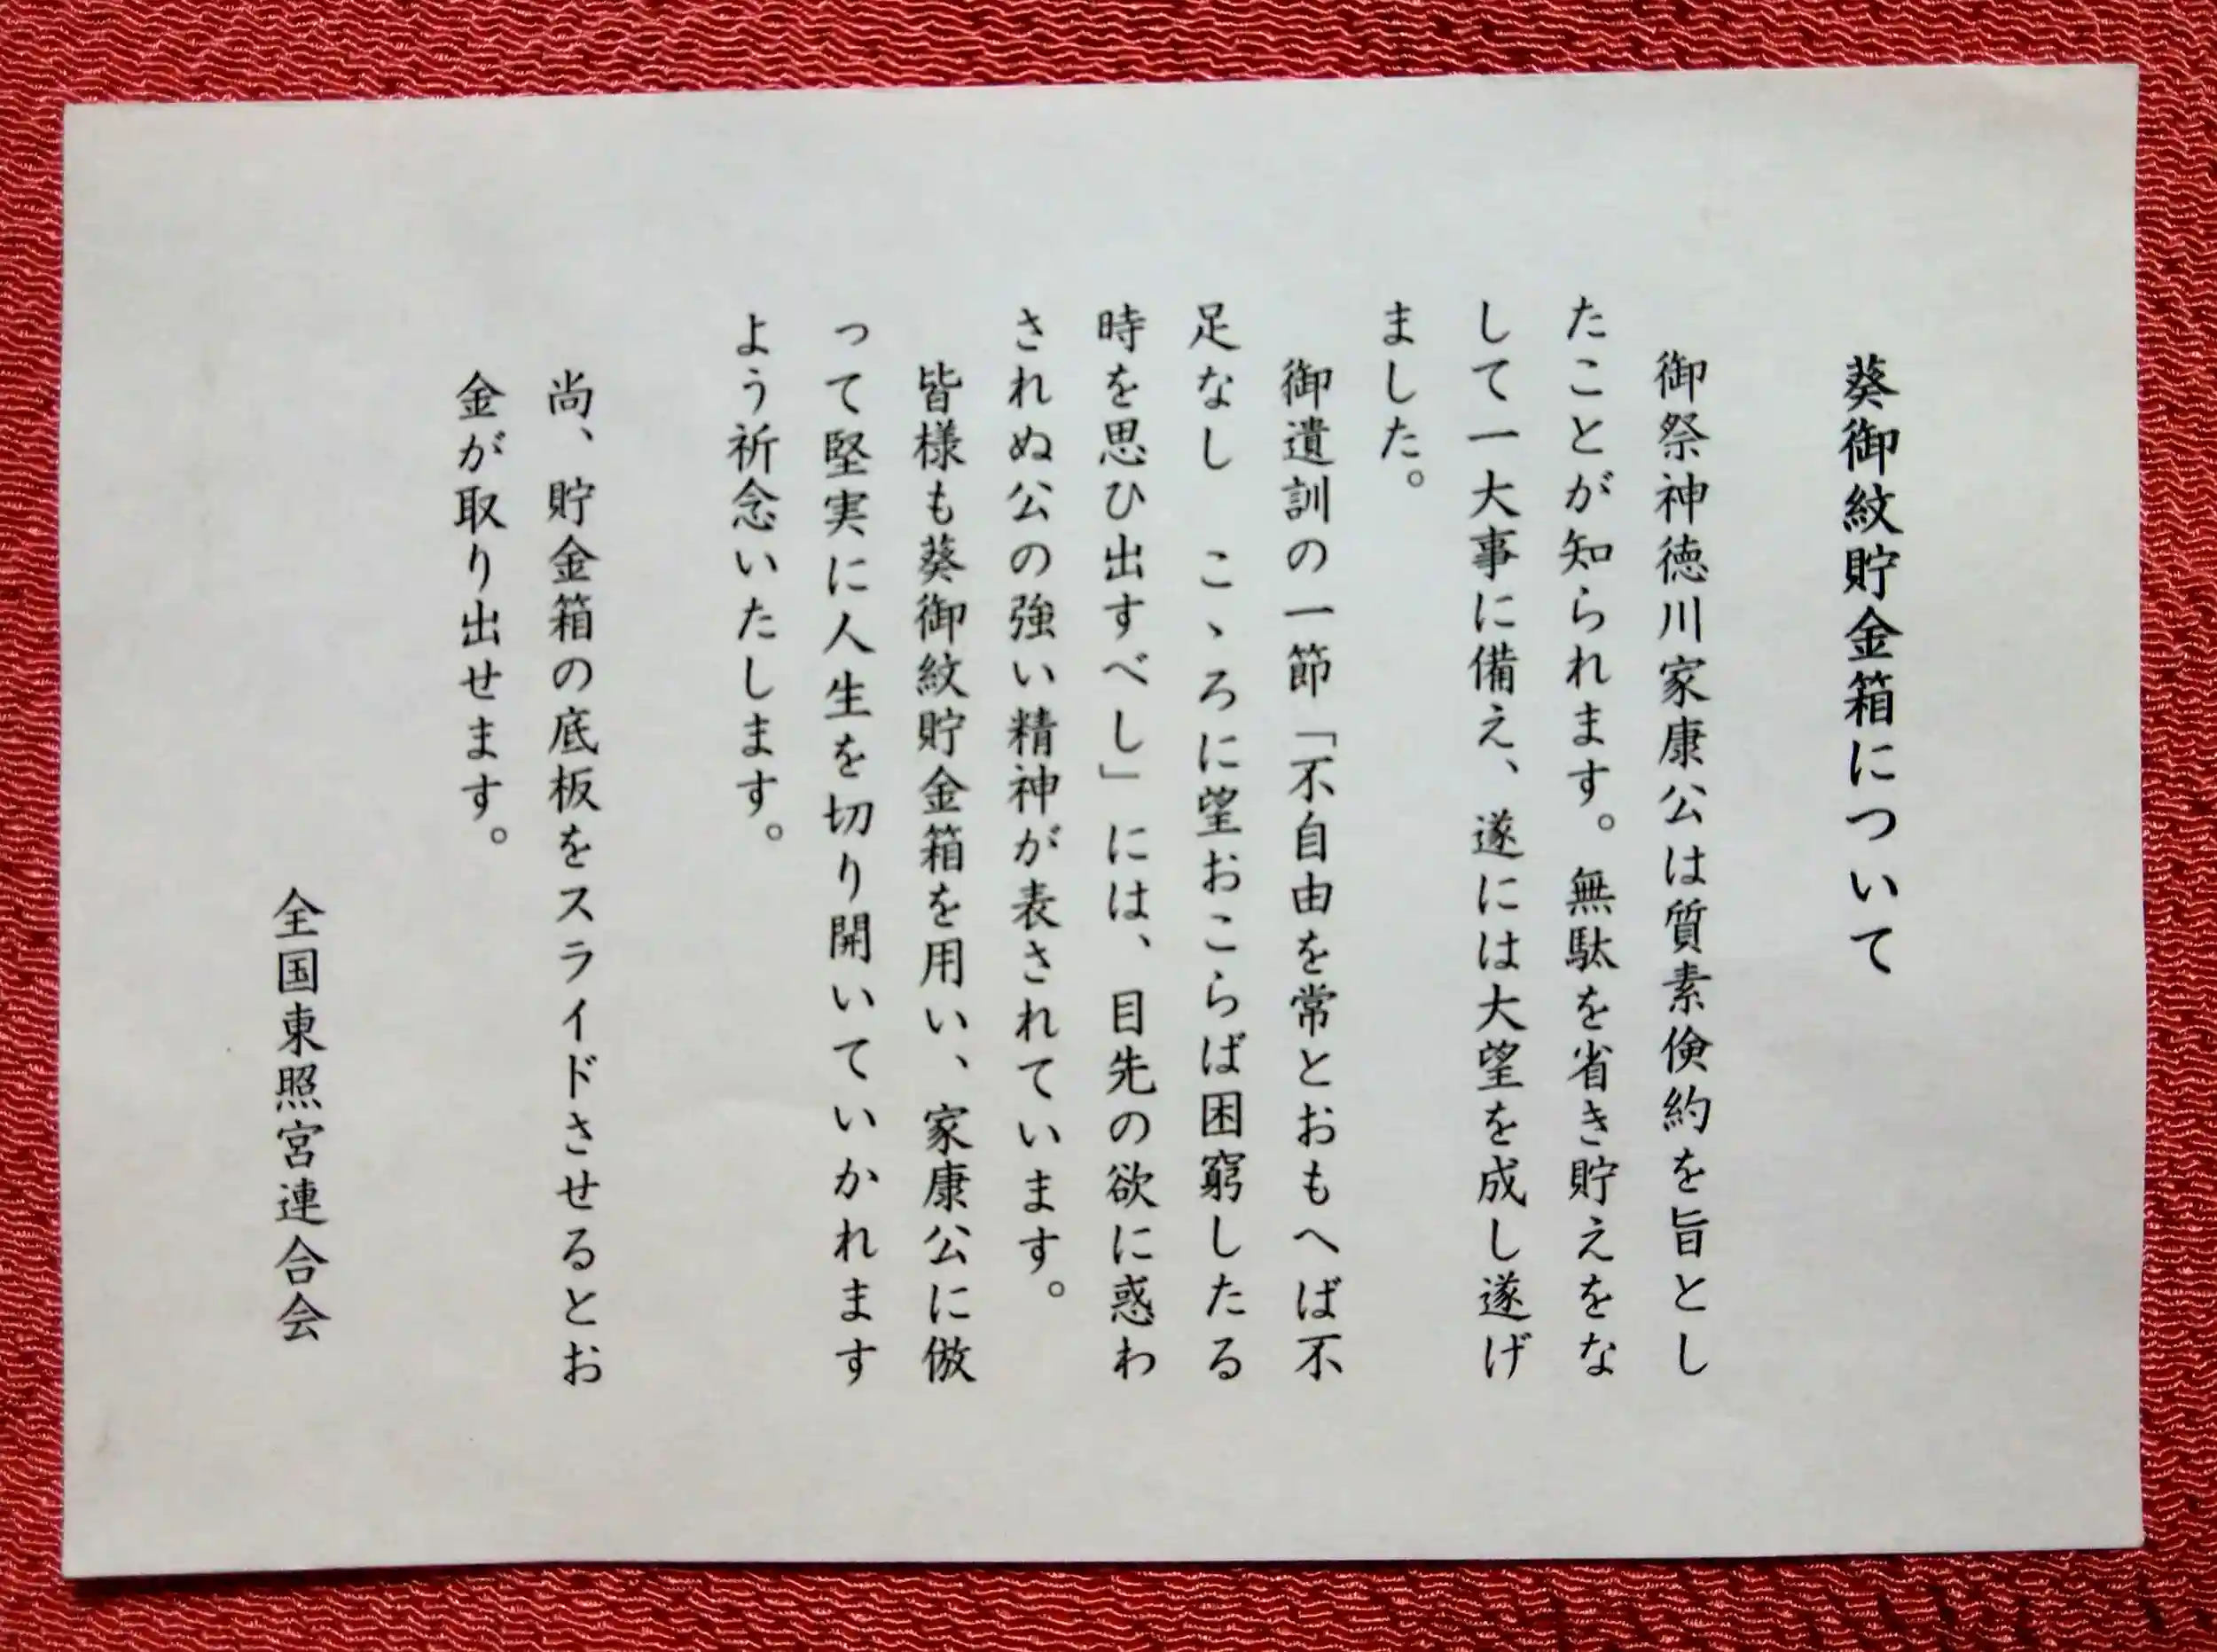 葵御紋貯金箱について
御祭神徳川家康公は質素倹約を旨とし
たことが知られます。無駄を省き貯えをな
して一大事に備え、遂には大望を成し遂げ
ました。
御遺訓の一節「不自由を常とおもへば不
足なし　こゝろに望おこらば困窮したる
時を思ひ出すべし」には、目先の欲に惑わ
されぬ公の強い精神が表されています。
皆様も葵御紋貯金箱を用い、家康公に倣
って堅実に人生を切り開いていかれます
よう祈念いたします。
尚、貯金箱の底板をスライドさせるとお
金が取り出せます。
全国東照宮連合会